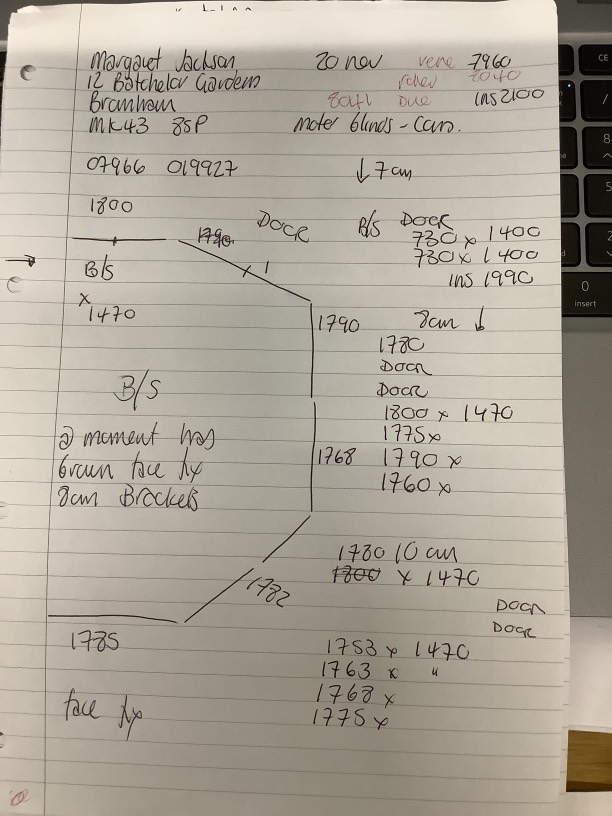 Margaret Jackson 20 nov vene 7960
12 Batchelor Gardens roller 8040
Bromham 8041 Due ins 2100
MK43 8SP moter blinds - Cars.
07966 019927 ↓ 7 cm
1800
1790 DOOR B/S DOOR
730 x 1400
B/S 1 730 x 1400
ins 1990
x 1470
1790 8cm ↓
1780
DOOR
B/S DOOR
1800 x 1470
@ moment has 1775 x
brown face fix 1768 1790 x
8cm Brackets 1760 x
1780 10 cm
1800 x 1470
1782
DOOR
DOOR
1785 1753 x 1470
1763 x "
1768 x
face fix 1775 x